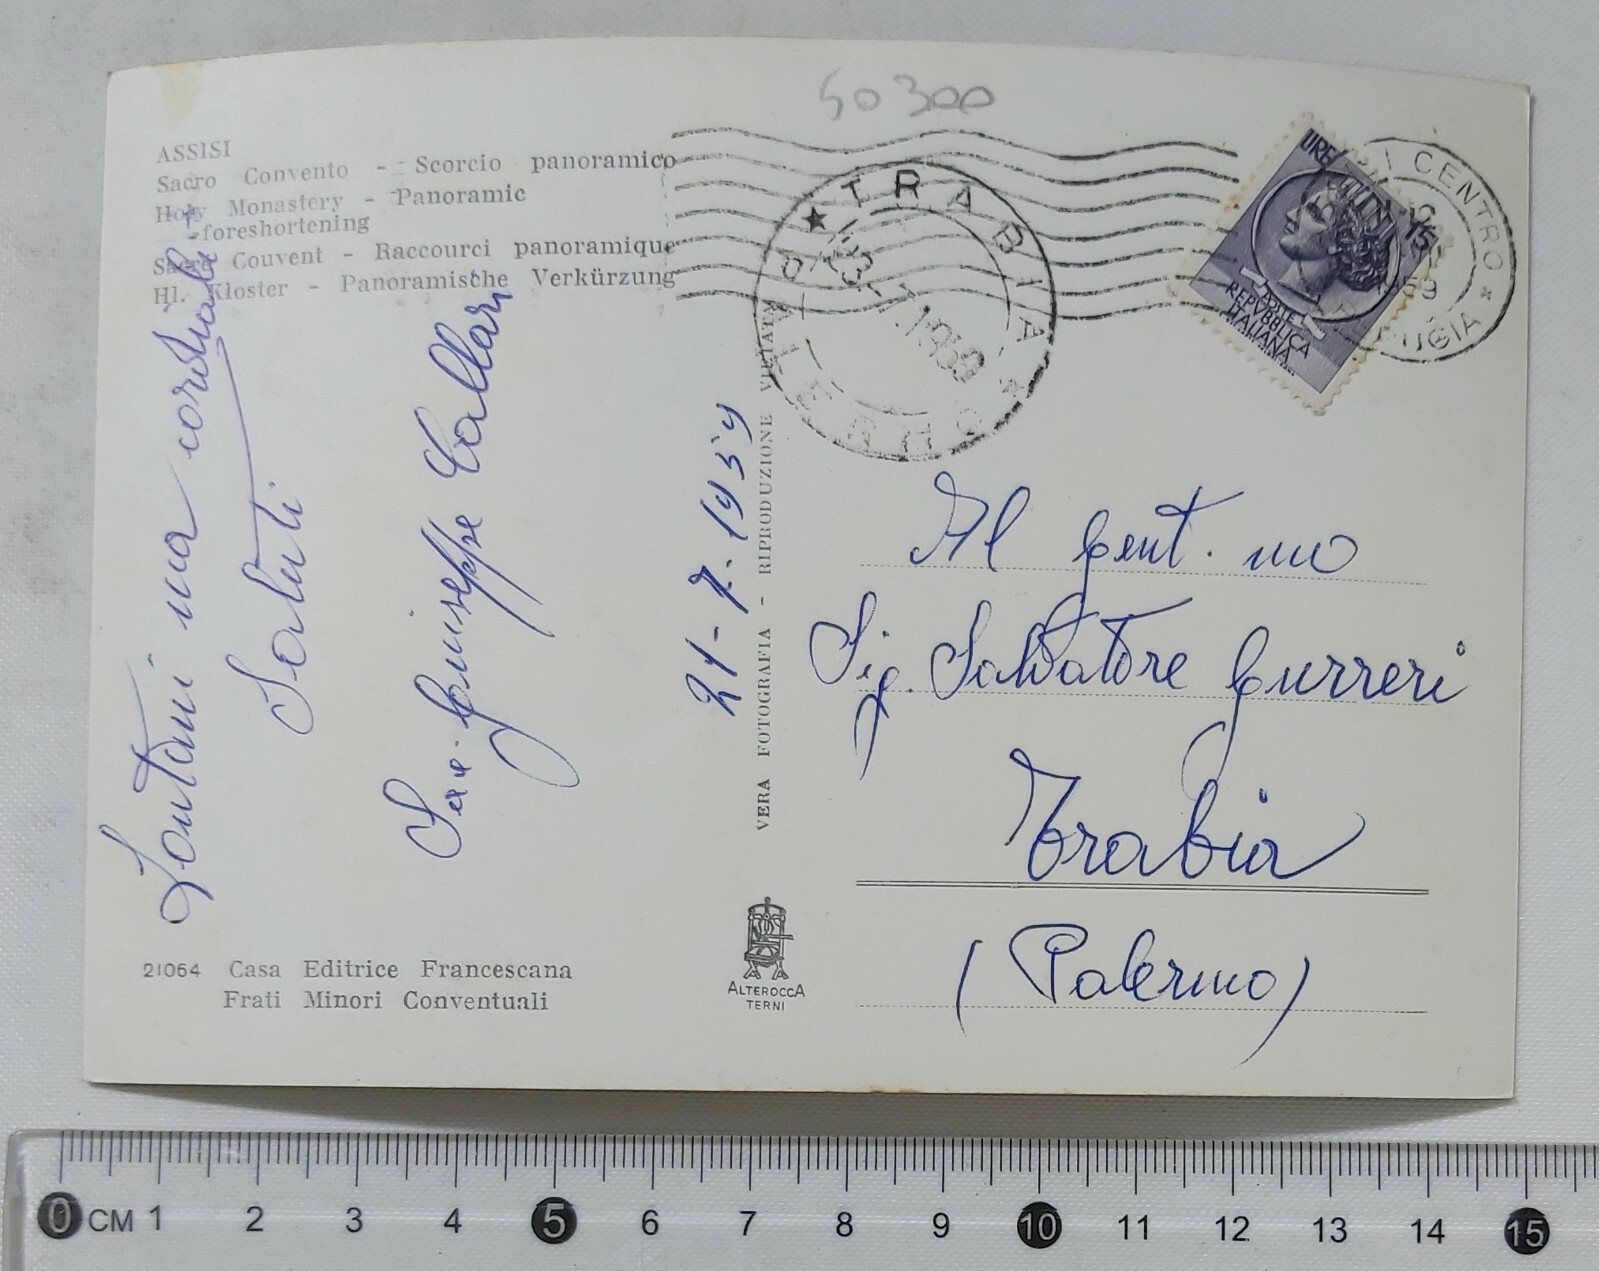 50300
ASSISI
Sacro Convento - Scorcio panoramico
Holy Monastery - Panoramic
foreshortening
Sacré Couvent - Raccourci panoramique
Hl. Kloster - Panoramische Verkürzung
Lontani ma cordiali
Saluti
Giuseppe Collari
21-7-1959
VERA FOTOGRAFIA - RIPRODUZIONE VIETATA
21064 Casa Editrice Francescana
Frati Minori Conventuali
ALTEROCCA
TERNI
★ TRABIA ★
PALERMO
23.-7.1959
LIRE 15
POSTE
REPVBBLICA
ITALIANA
CENTRO
PERUGIA
Al Gent.mo
Sig. Salvatore Gurreri
Trabia
(Palermo)
0 CM 1 2 3 4 5 6 7 8 9 10 11 12 13 14 15